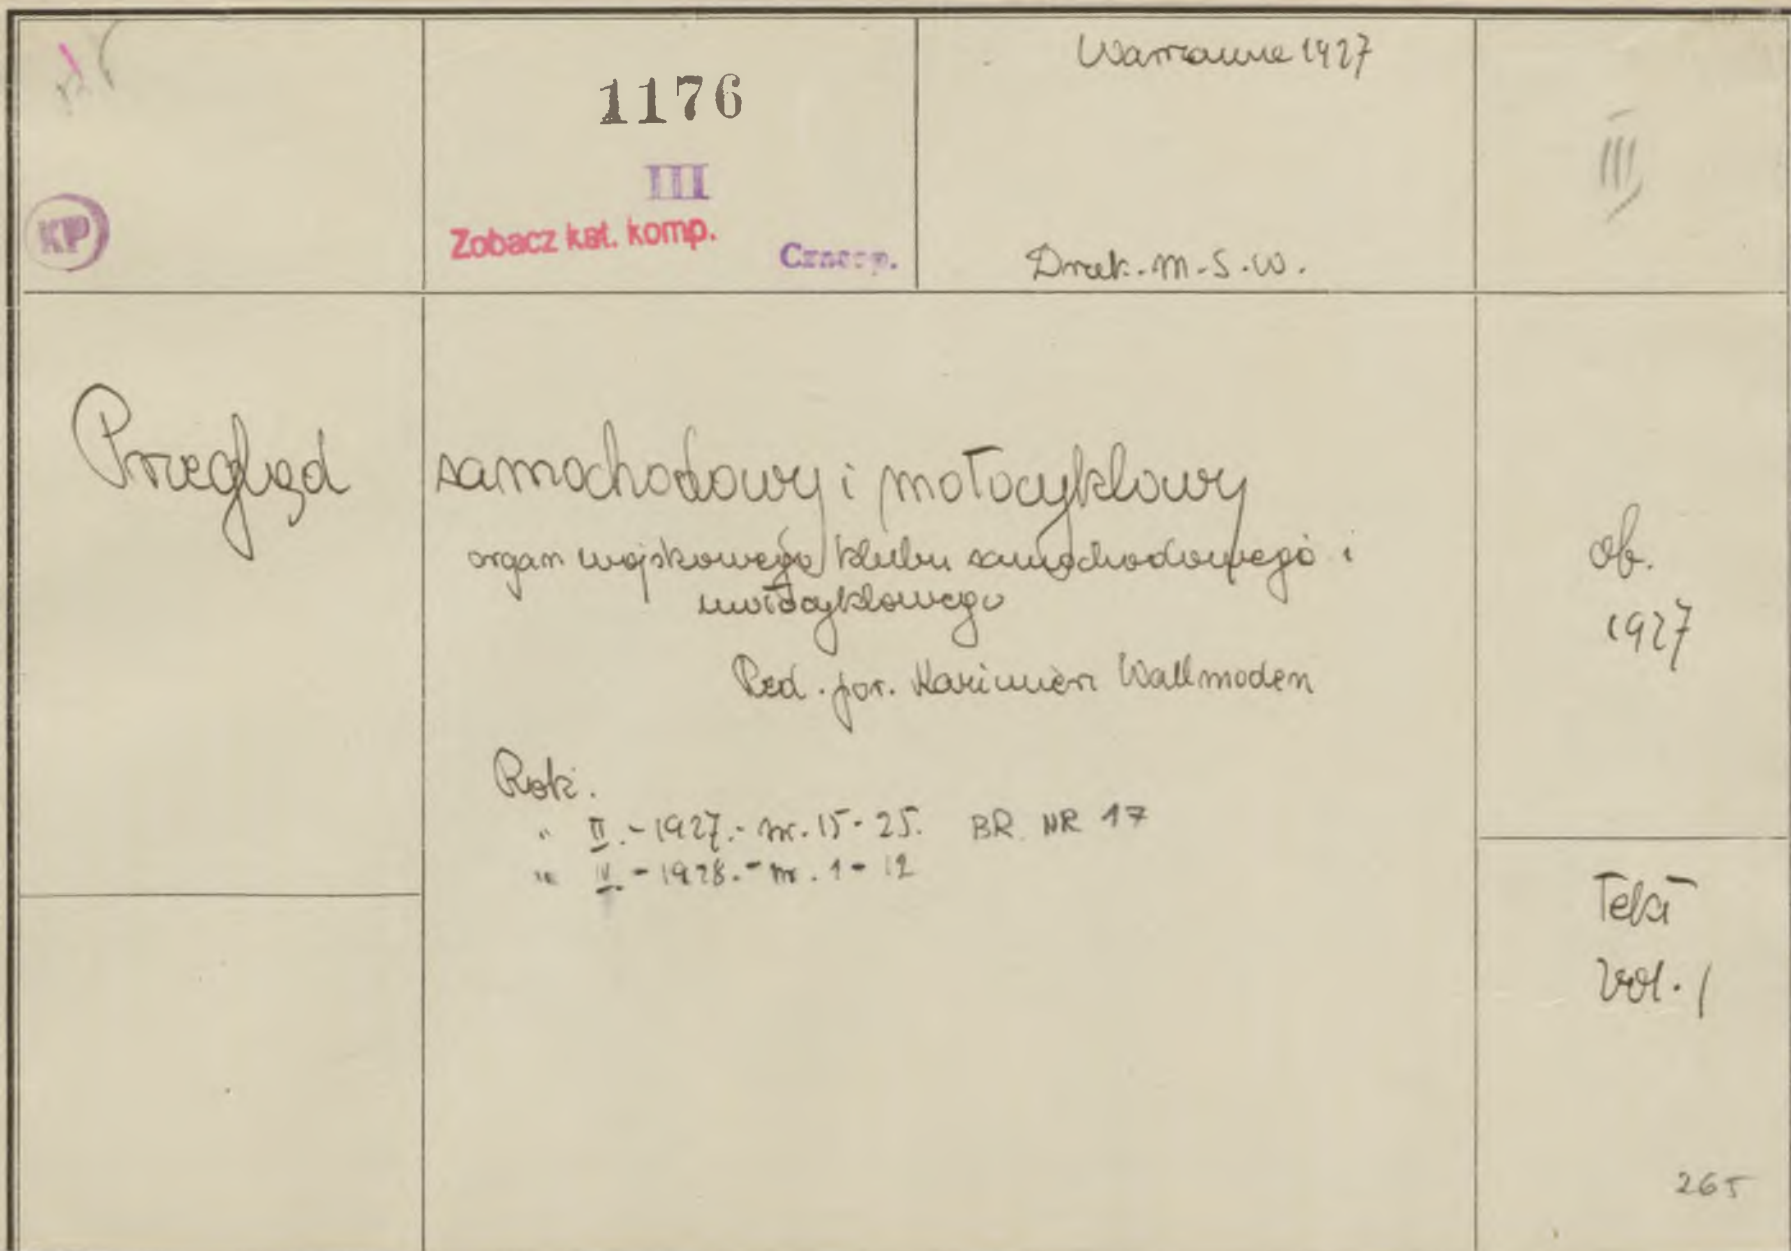 1176
III
Zobacz kat. komp.
Czasop.
KP
Warszawa 1927
Druk. M.S.W.
III
Przegląd samochodowy i motocyklowy
organ wojskowego klubu samochodowego i
motocyklowego
Red. por. Kazimierz Wallmoden
Rok:
" II. - 1927. - nr. 15 - 25. BR. NR 17
" IV. - 1928. - nr. 1 - 12
ob.
1927
Tekt
vol. 1
265